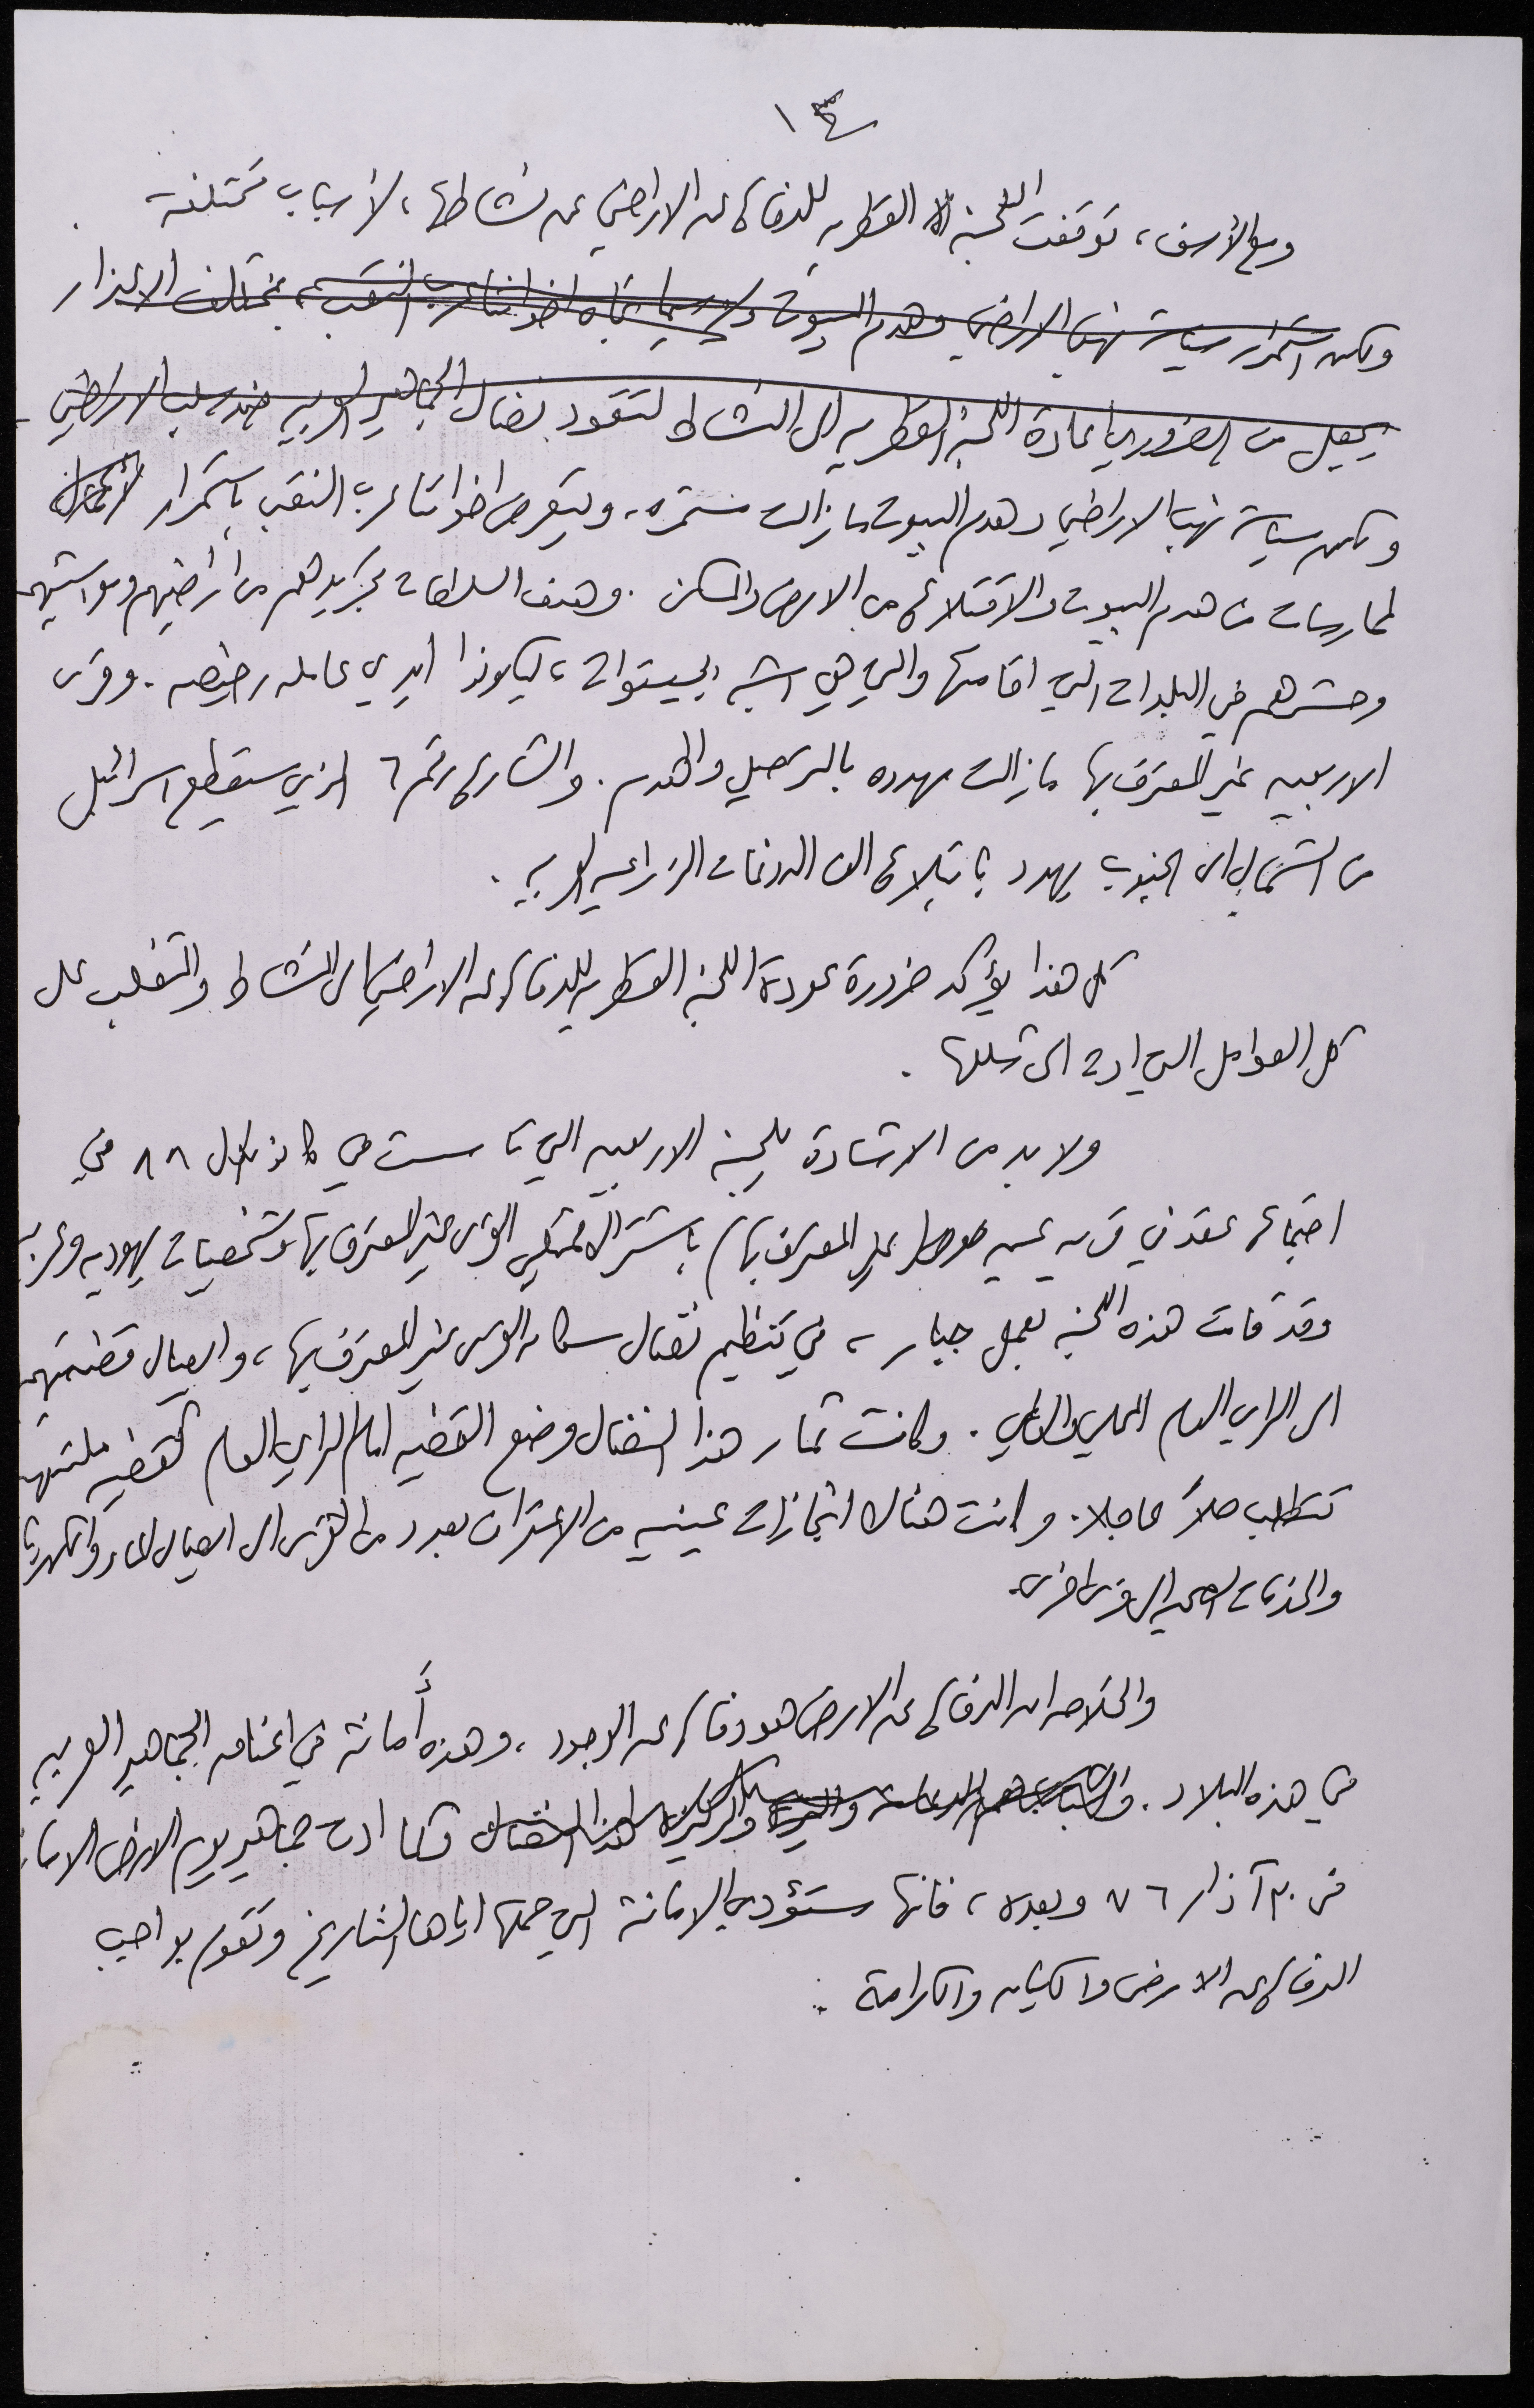 ١٤
ومع الأسف، توقفت اللجنة القطريه للدفاع عن الاراضي عن نشاطها، لأسباب مختلفة
ولكن استمرار سياسة نهب الاراضي وهدم البيوت ولا سيما تجاه اخواننا عرب النقب، بمختلف الاعذار
يجعل من الضروري اعادة اللجنة القطريه الى النشاط لتقود نضال الجماهير العربيه ضد سلب الاراضي
ولكن سياسة نهب الاراضي وهدم البيوت ما زالت مستمره، ويتعرض اخواننا عرب النقب باستمرار
لممارسات من هدم البيوت والاقتلاع من الارض والمسكن. وهدف السلطات تجريدهم من أراضيهم ومواشيهم
وحشرهم في البلدات التي اقامتها والتي هي اشبه بالجيتوات، ليكونوا ايدي عامله رخيصه. وقرى
الاربعين غير المعترف بها ما زالت مهدده بالترحيل والهدم. والشارع رقم ٦ الذي سيقطع اسرائيل
من الشمال الى الجنوب يهدد بابتلاع الاف الدونمات الزراعيه العربيه.
كل هذا يؤكد ضرورة عودة اللجنة القطريه للدفاع عن الاراضي الى النشاط والتغلب على
كل العوامل التي ادت الى شللها.
ولا بد من الاشادة بلجنة الاربعين التي تأسست في كانون اول ٨٨ في
اجتماع عقد في قريه عين حوض (غير المعترف بها) باشتراك ممثلي القرى غير المعترف بها وشخصيات يهوديه وعربيه
وقد قامت هذه اللجنة بعمل جبار، في تنظيم نضال سكان القرى غير المعترف بها، وايصال قضيتهم
الى الراي العام المحلي والعالمي. وكانت ثمار هذا النضال وضع القضيه امام الراي العام كقضيه ملتهبه
تتطلب حلاً عاجلا. وكانت هناك انجازات عينيه من الاعتراف بعدد من القرى الى ايصال الماء والكهرباء
والخدمات الصحيه الى قرى اخرى.
والخلاصه ان الدفاع عن الارض هو دفاع عن الوجود، وهذه أمانة في اعناق الجماهير العربيه
في هذه البلاد. وكما ادت جماهير يوم الارض الامانة
في ٣٠ آذار ٧٦ وبعده، فانها ستؤدي الامانة التي حملها اياها التاريخ وتقوم بواجب
الدفاع عن الارض والكيان والكرامة.